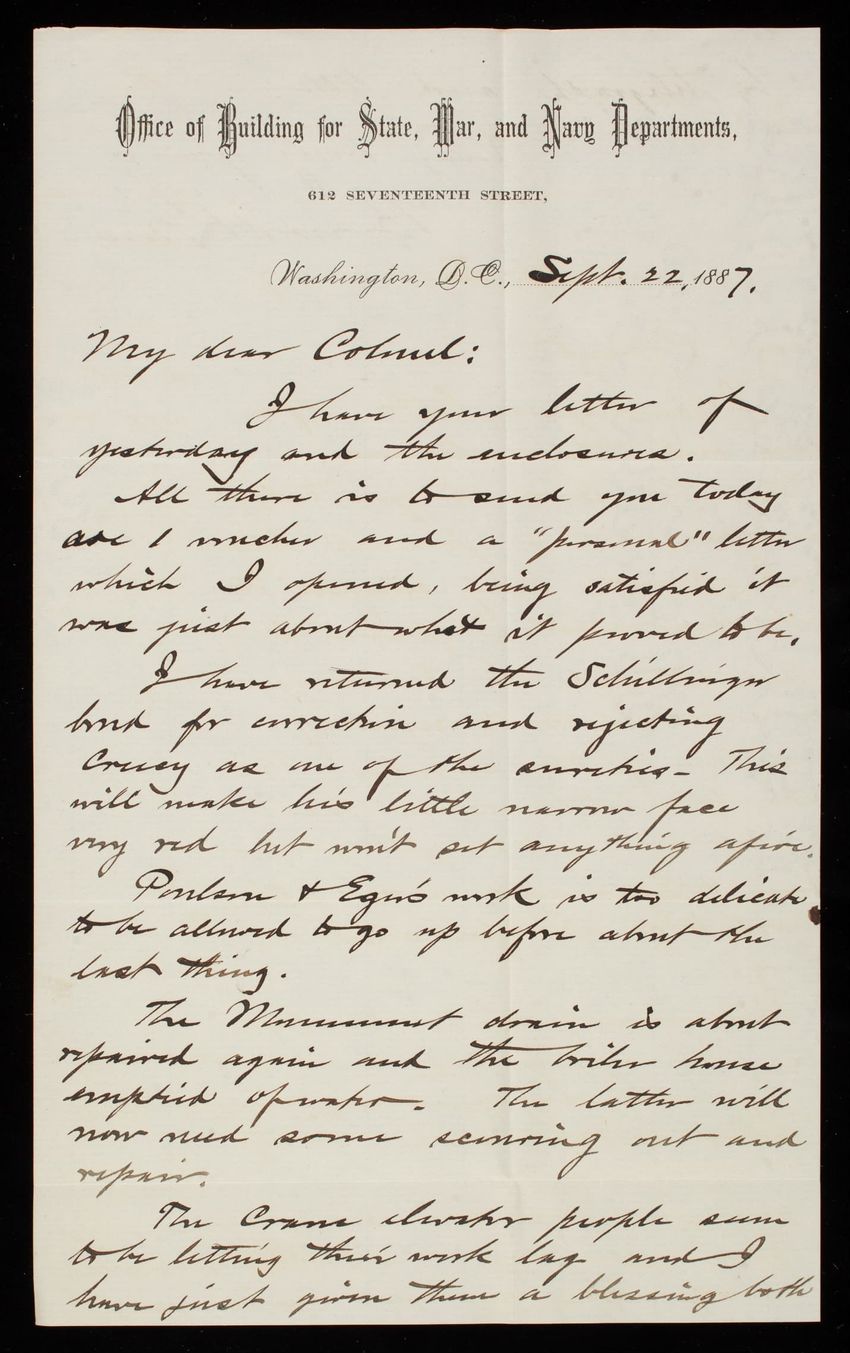 Office of Building for State, War, and Navy Departments,
612 SEVENTEENTH STREET,
Washington, D.C., Sept. 22, 1887.
My dear Colonel:
I have your letter of
yesterday and the enclosures.
All there is to send you today
are 1 voucher and a "personal" letter
which I opened, being satisfied it
was just about what it proved to be.
I have returned the Schillinger
bond for correction and rejecting
Creecy as one of the sureties - This
will make his little narrow face
very red but won't set anything afire.
Poulson & Eger's work is too delicate
to be allowed to go up before about the
last thing.
The Monument drain is about
repaired again and the boiler house
emptied of water. The latter will
now need some scouring out and
repair.
The Crane elevator people seem
to be letting their work lag and I
have just given them a blessing both